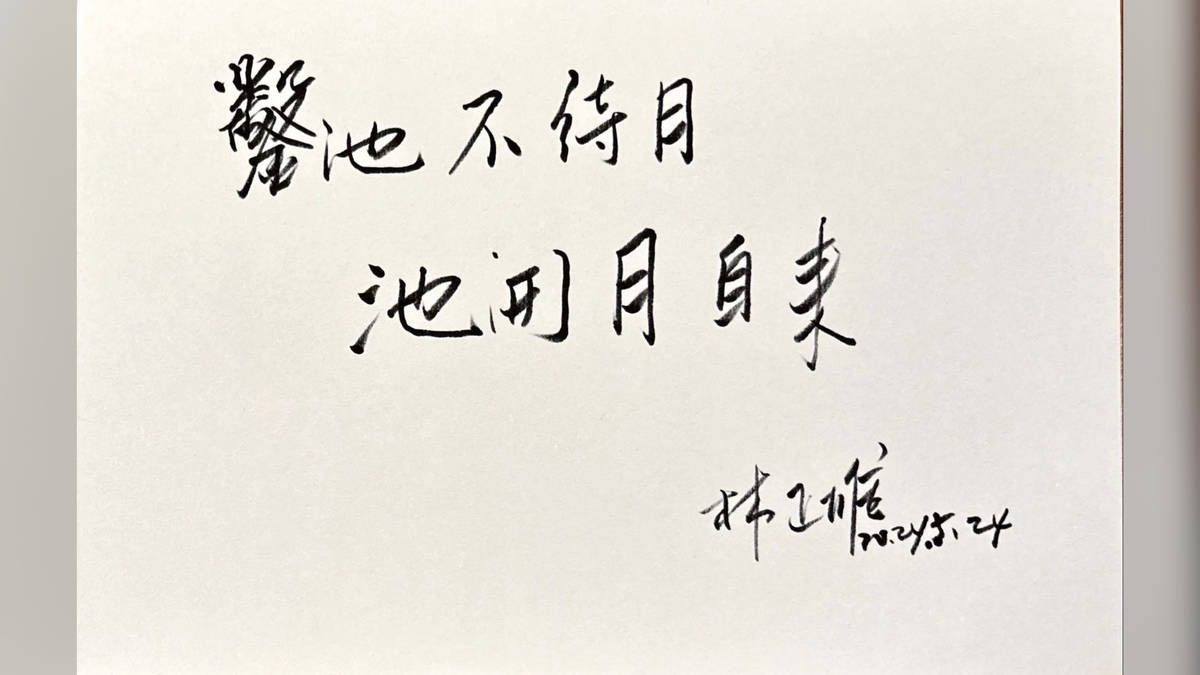 鑿池不待月
池開月自來
林正 2024.5.24